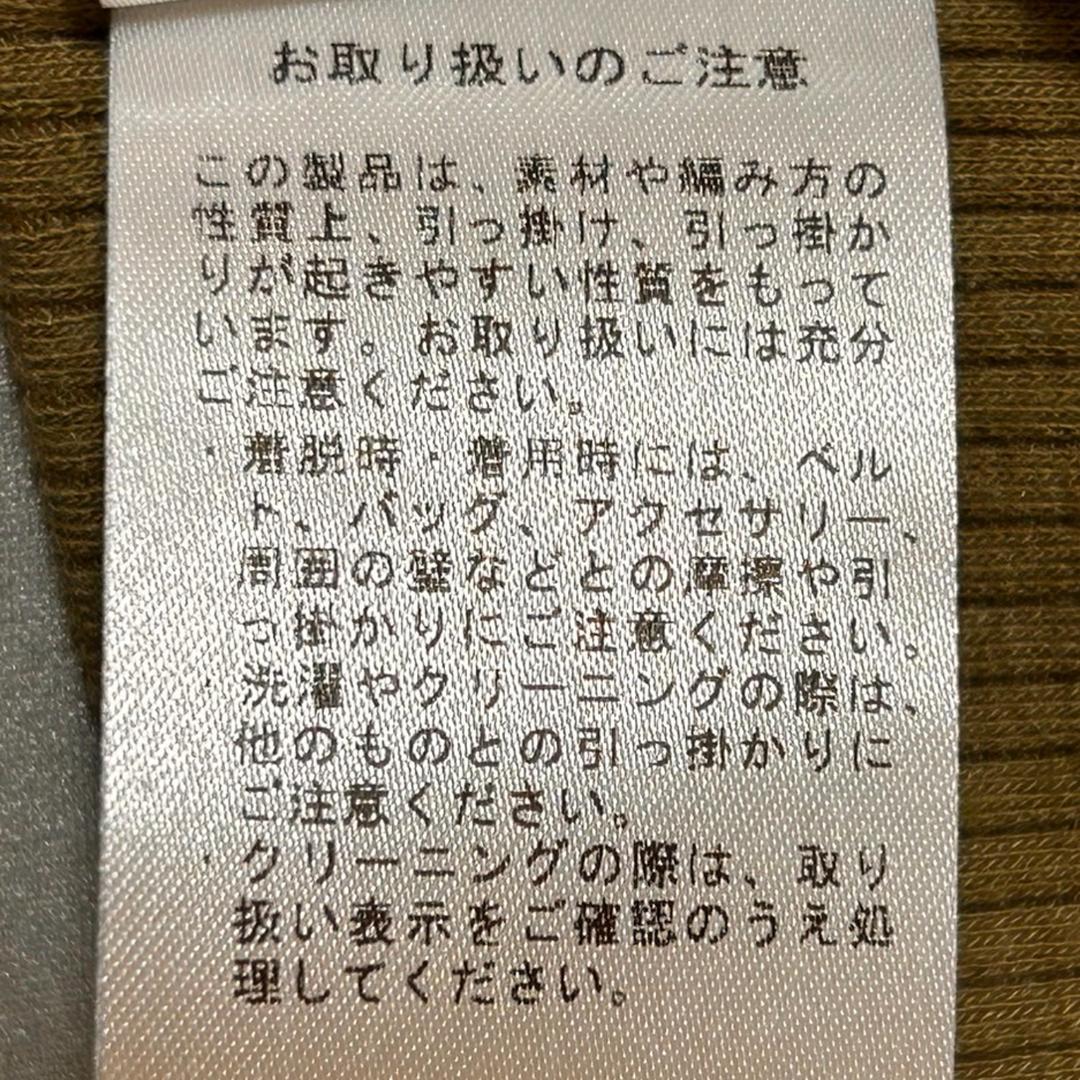 お取り扱いのご注意
この製品は、素材や編み方の
性質上、引っ掛け、引っ掛か
りが起きやすい性質をもって
います。お取り扱いには充分
ご注意ください。
・着脱時・着用時には、ベル
ト、バッグ、アクセサリー、
周囲の壁などとの摩擦や引
っ掛かりにご注意ください。
・洗濯やクリーニングの際は、
他のものとの引っ掛かりに
ご注意ください。
・クリーニングの際は、取り
扱い表示をご確認のうえ処
理してください。